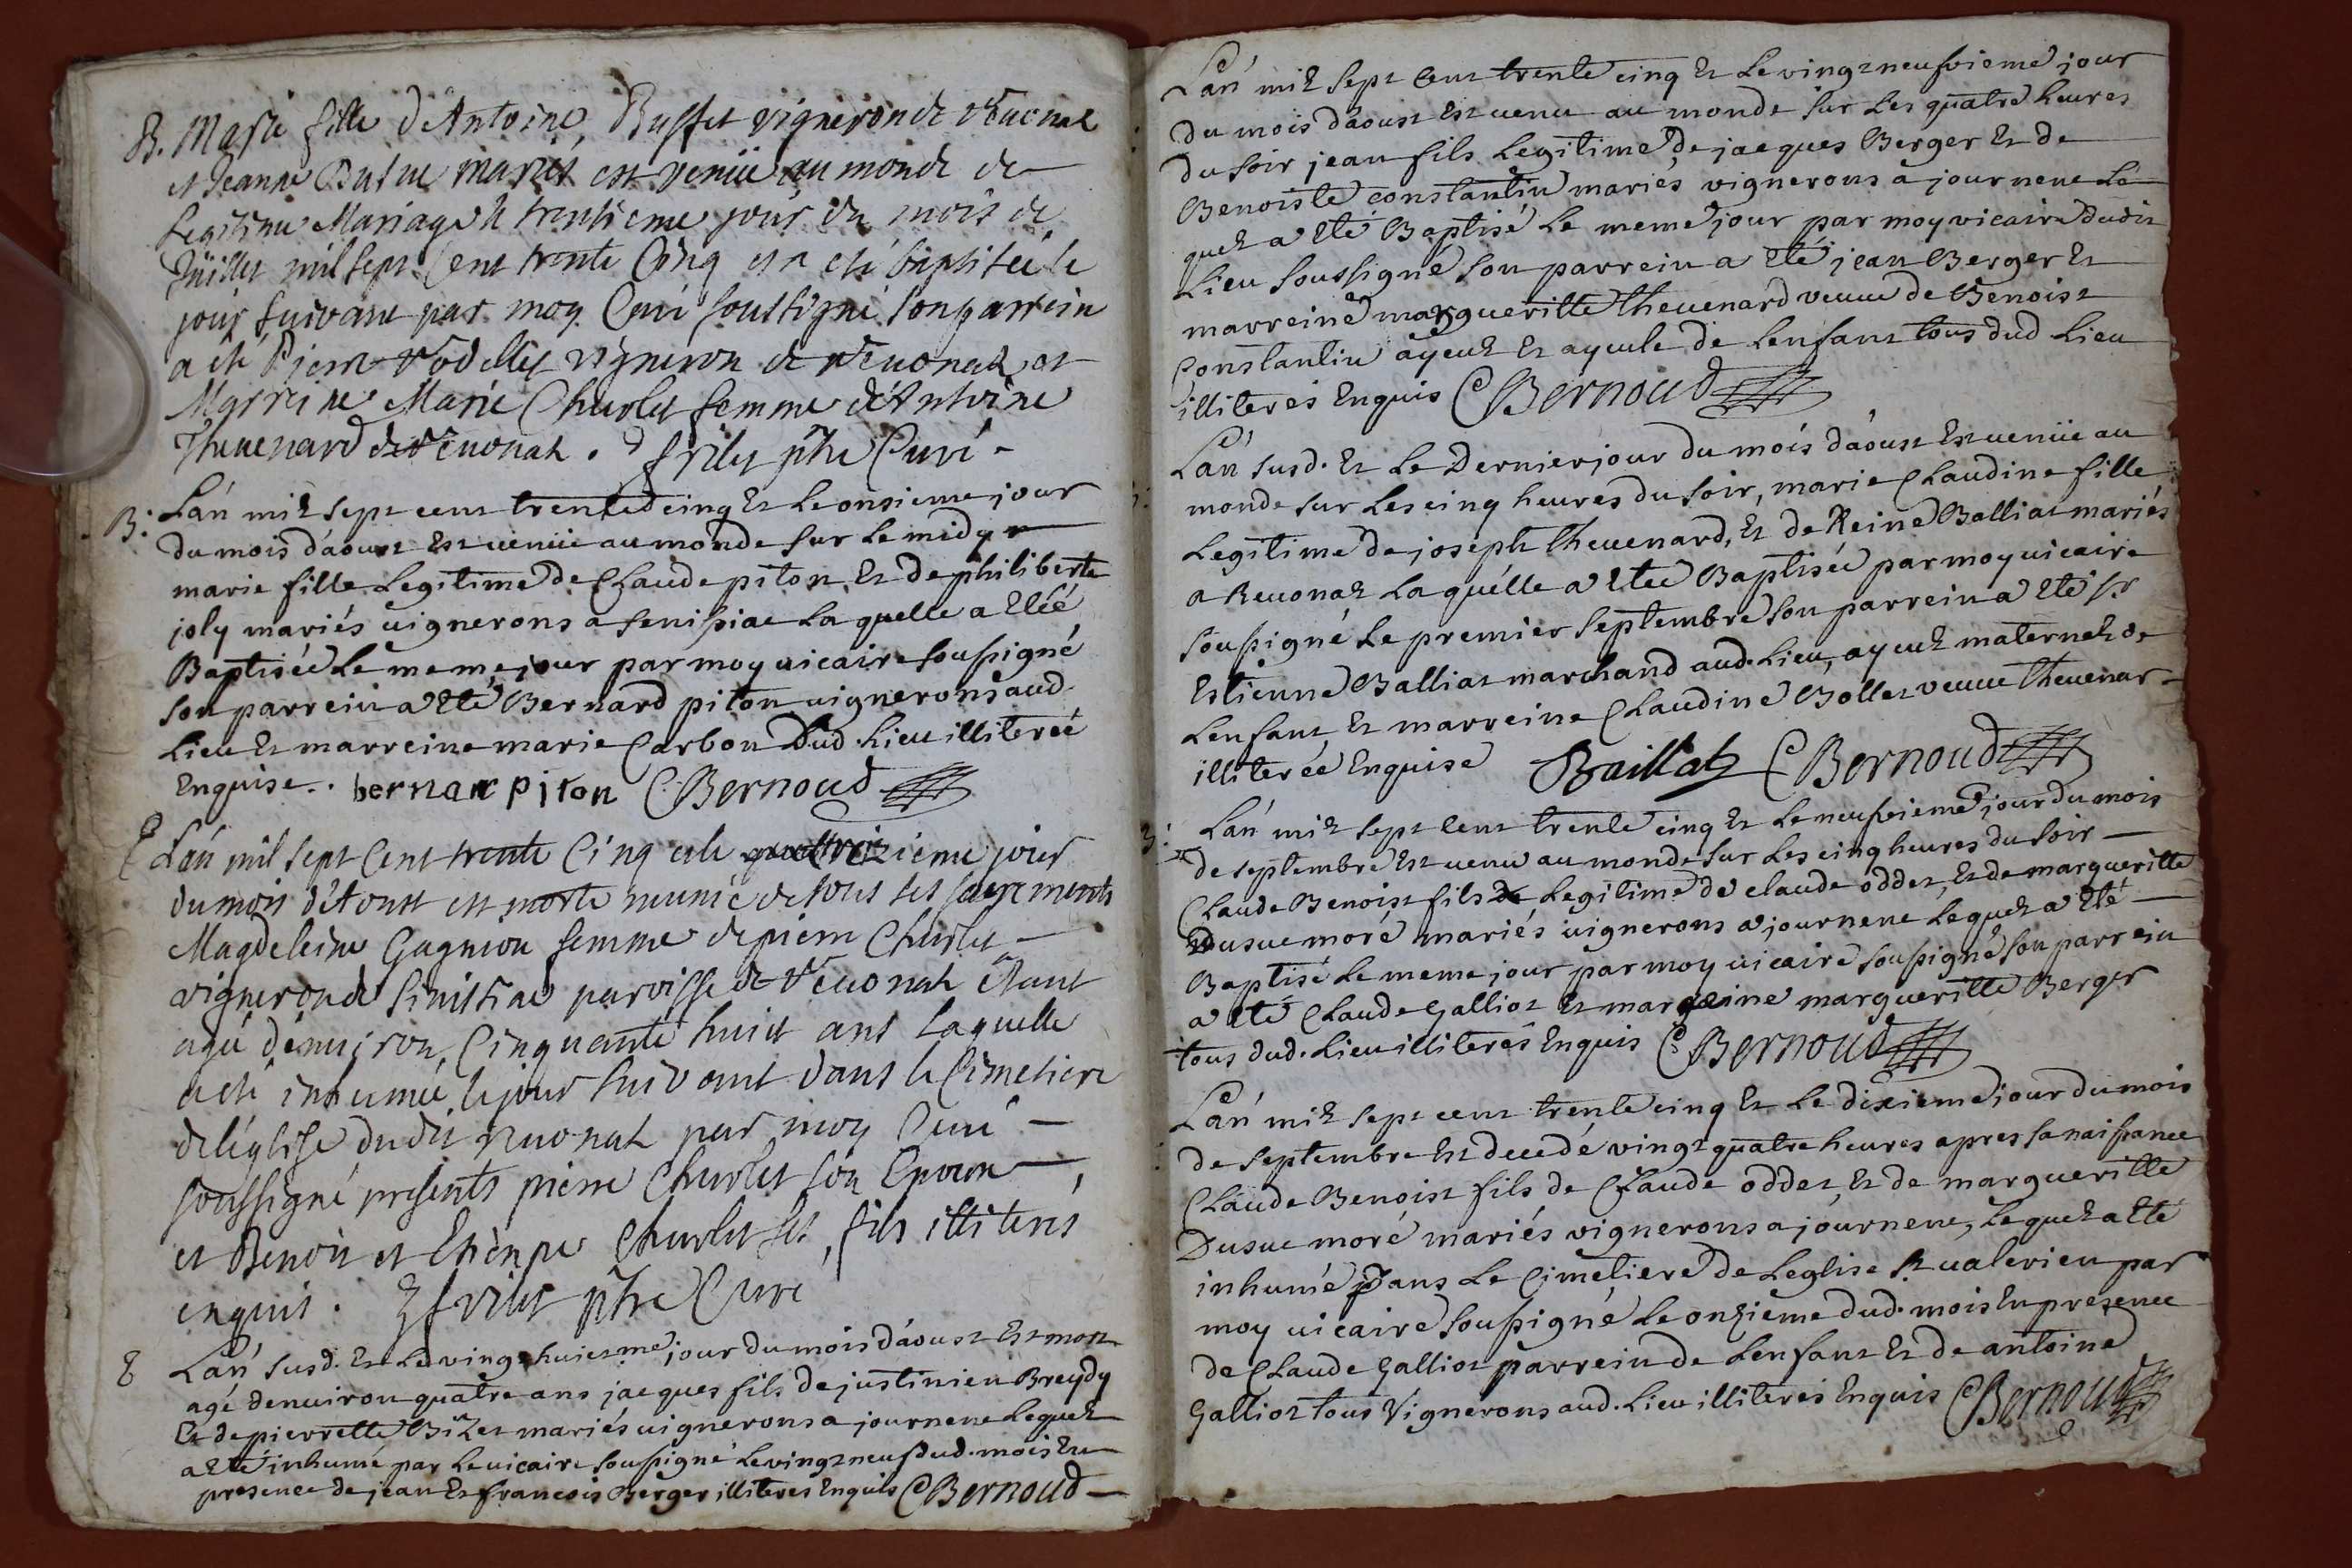 B. Marie fille d'Antoine Buffet vigneron de Reuonat
et Jeanne Dusue mariés est venüe au monde de
Legitime Mariage le trentieme jour du mois de
Juillet mil sept Cent trente Cinq et a eté baptisée le
jour suivant par moy Curé soussigné son parrein
a eté Pierre vigneron de Reuonat et
Marreine Marie Charlet femme d'Antoine
Theuenard de Reuonat. ptre Curé
B: Lan mil sept cent trente cinq Et Le onsieme jour
du mois daoust Est uenüe au monde sur Le midy
marie fille Legitime de Claude piton Et de philiberte
joly mariés uignerons a senissiac La quelle a Etéé
Baptisée Le meme jour par moy uicaire soussigné
son parrein a Eté Bernard piton uignerons aud.
Lieu Et marreine marie Carbon dud. Lieu illiterée
Enquise. bernar piton CBernoud
L'an mil sept Cent trente Cinq et le ieme jour
du mois d'Aoust est morte munie de tous ses sacrements
Magdeleine Gagnion femme de pierre Charlet
vigneron de Sinissiac parroisse de Reuonat étant
agée d'enuiron Cinquante huit ans laquelle
a eté inhumée le jour suivant dans le Cimetiere
de l'église dudit reuonat par moy Curé
soussigné presents pierre Charlet son Epoux
et Benoit et Etienne Charlet ses fils illiterés
enquis. ptre Curé
Lan susd. Et Le vingt huictme jour du mois daoust Est mort
agé denuiron quatre ans jacques fils de justinien Breydy
Et de pierrette Bizet mariés uignerons a journene Lequel
a Eté inhumé par Le uicaire soussigné Le vingt neuf dud. mois En
presence de jean Et francois Berger illiteres Enquis CBernoud
Lan mil sept Cent trente cinq Et Le vingt neufvieme jour
du mois daoust Est uenu au monde sur Les quatre heures
du soir jean fils Legitime de jacques Berger Et de
Benoiste constantin mariés vignerons a journene Le
quel a Eté Baptisé Le meme jour par moy vicaire dudit
Lieu soussigné son parrein a Eté jean Berger Et
marreine margueritte theuenard veuue de Benoist
Constantin ayeul Et ayeule de Lenfant tous dud Lieu
illiteres Enquis CBernoud
Lan susd. Et Le Dernier jour du mois daoust Est uenüe au
monde sur Les cinq heures du soir, marie Claudine fille
Legitime de joseph theuenard, Et de Reine Balliat mariés
a Reuonat Laquélle a Etée Baptisée par moy uicaire
soussigné Le premier septembre son parrein a Eté sr
Estienne Balliat marchand aud. Lieu, ayeul maternel de
Lenfant Et marreine Claudine Bollet veuue theuenar
illiterée Enquise Baillat CBernoud
B: Lan mil sept Cent trente cinq Et Le neufvieme jour du mois
de septembre Est uenu au monde sur Les cinq heures du soir
Claude Benoist fils de Legitime de claude oddet, Et de margueritte
Dusue moré mariés uignerons a journene Lequel a Eté
Baptisé Le meme jour par moy uicaire soussigné son parrein
a Eté Claude Galliot Et marreine margueritte Berger
tous dud. Lieu illiterés Enquis CBernoud
Lan mil sept cent trente cinq Et Le dixieme jour du mois
de septembre Est decedé vingt quatre heures apres sa naissance
Claude Benoist fils de Claude oddet, Et de margueritte
Dusue moré mariés vignerons a journene, Lequel a Eté
inhumé dans Le Cimetiere de Leglise st ualerien par
moy uicaire soussigné Le onzieme dud. mois En presence
de Claude Galliot parrein de Lenfant Et de antoine
Galliot tous Vignerons aud. Lieu illiteres Enquis CBernoud